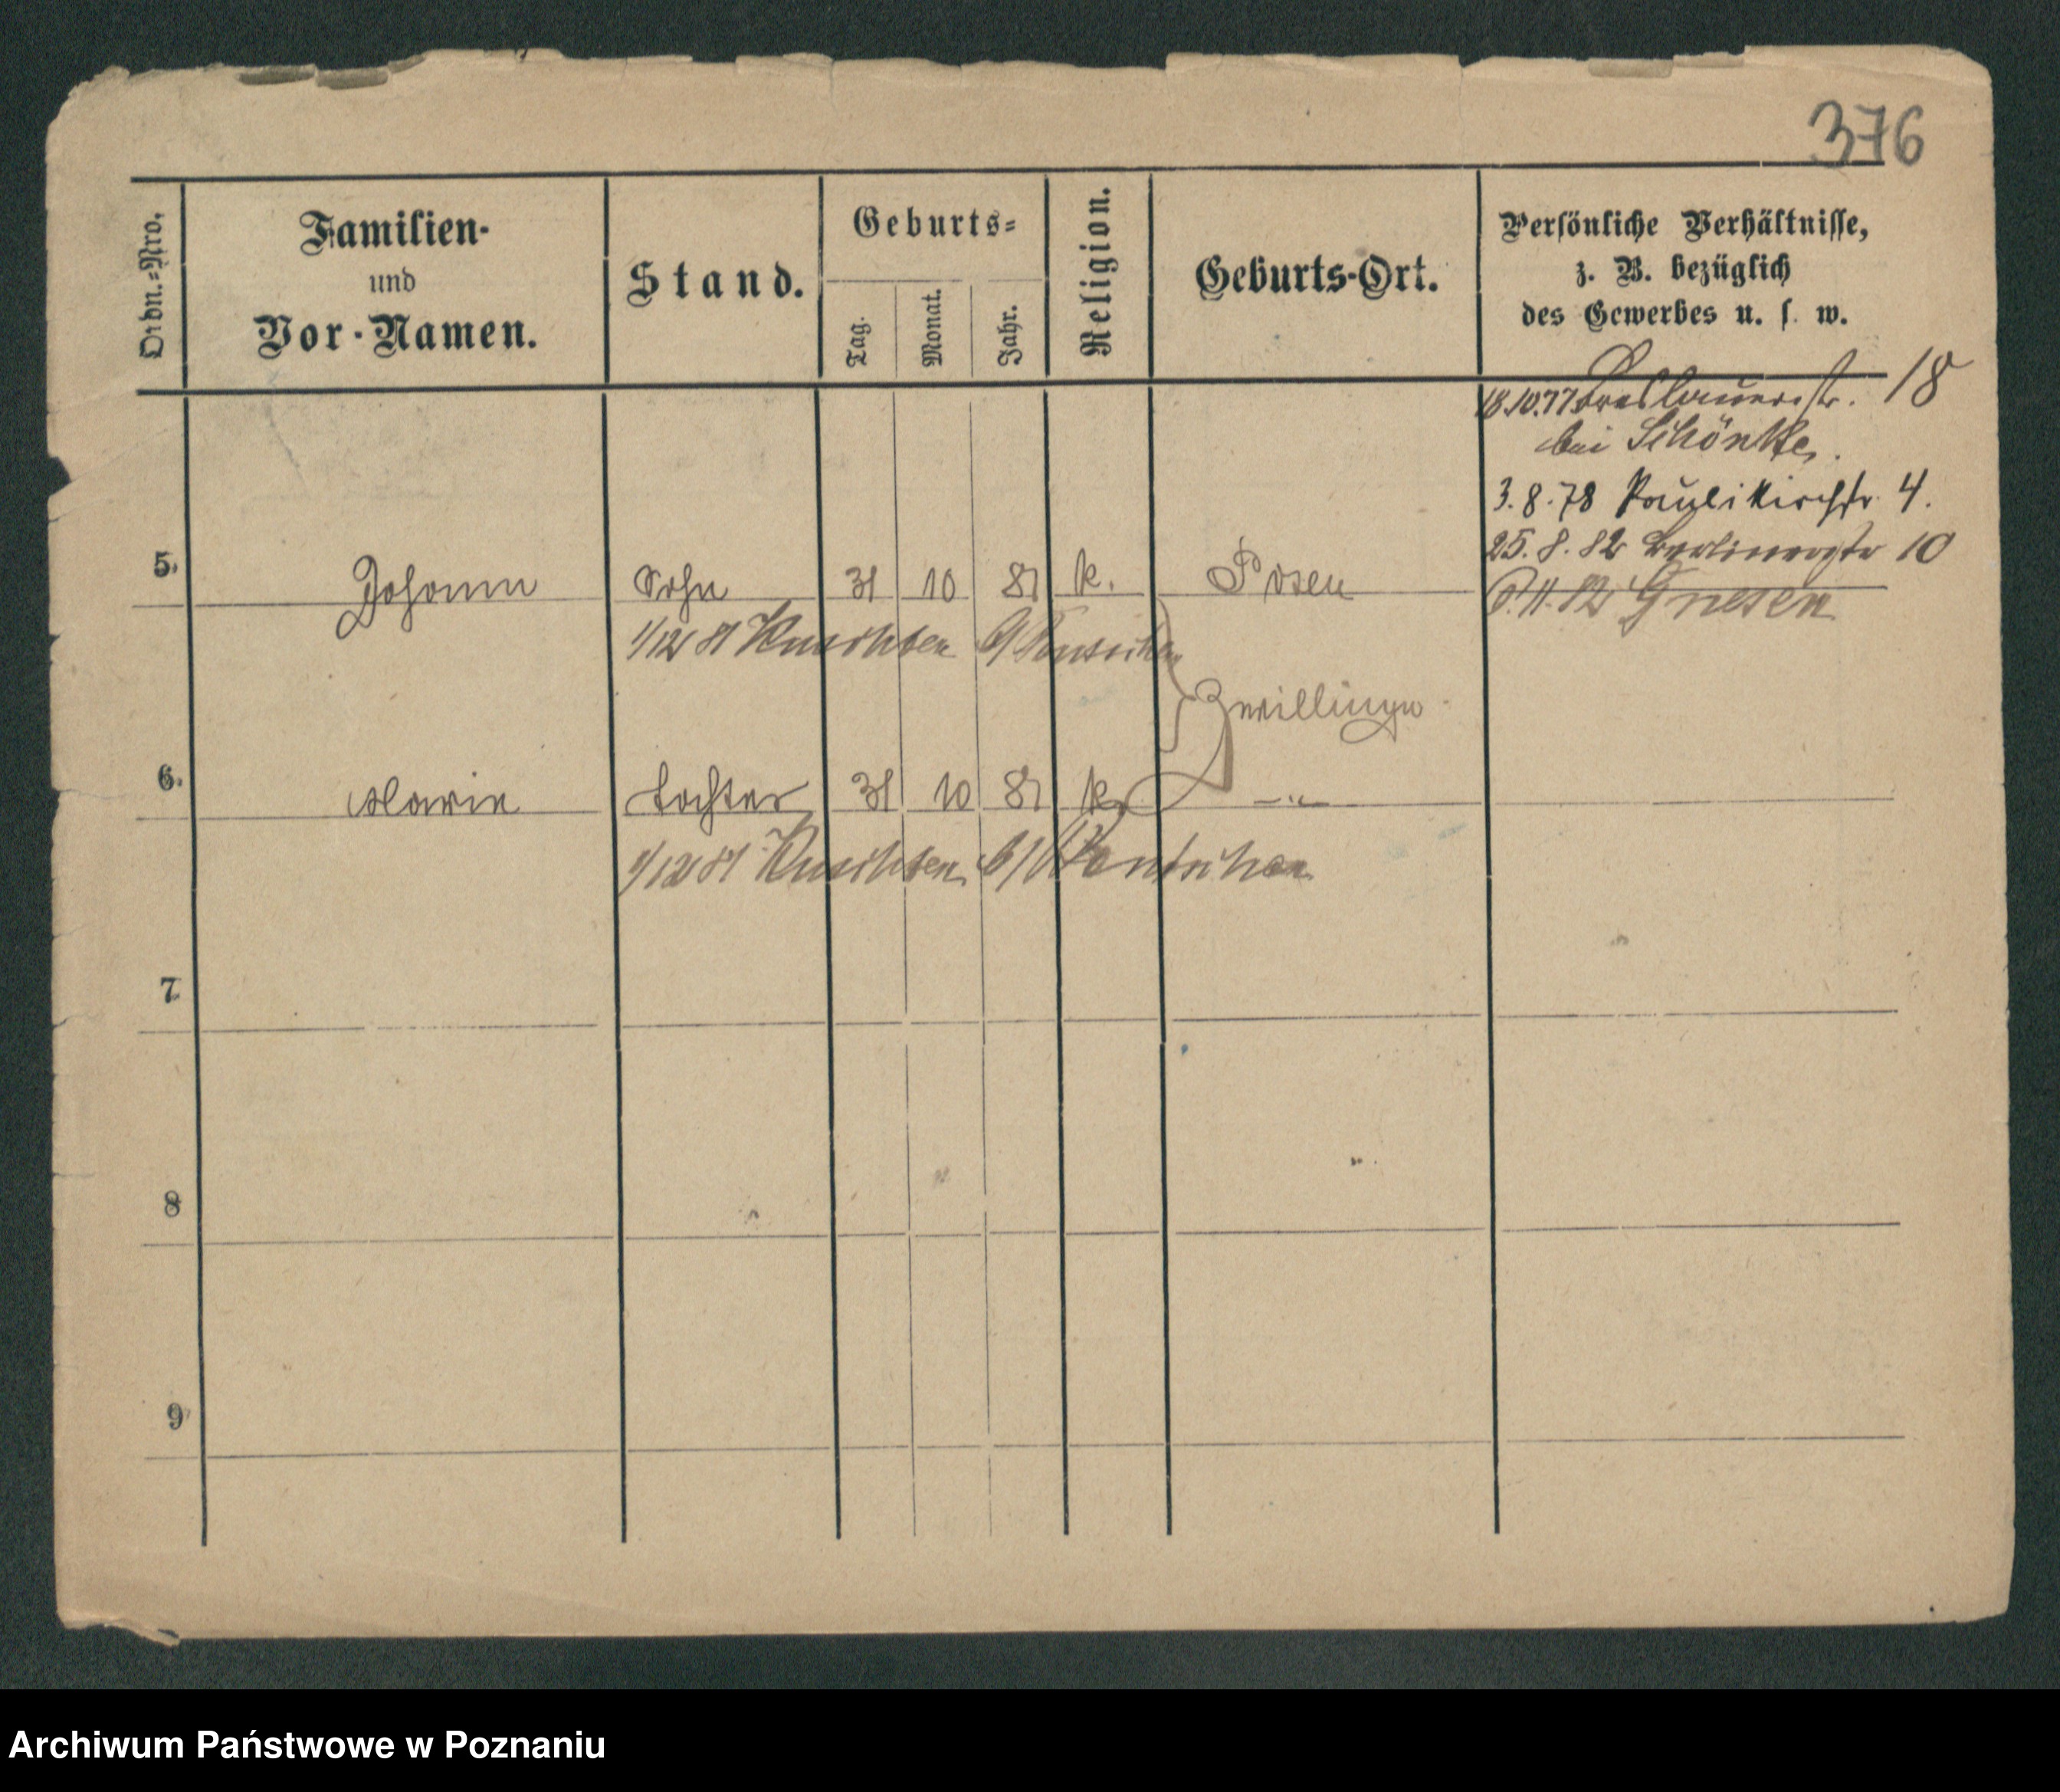 376
Ordn.-Nro.
Familien-
und
Vor-Namen.
Stand.
Geburts-
Tag.
Monat.
Jahr.
Religion.
Geburts-Ort.
Persönliche Verhältnisse,
z. B. bezüglich
des Gewerbes u. s. w.
18.10.77 Breslauerstr. 18
bei Schönke.
3.8.78 Paulikirchstr. 4.
25.8.82 Berlinerstr 10
11.82 Gnesen
5. Johann Sohn 31 10 81 k. Posen
1/12 81 b/
Zwillinge
6. Marie Tochter 31 10 81 k. -"-
1/12 81 b/ Bentschen
7
8
9
Archiwum Państwowe w Poznaniu